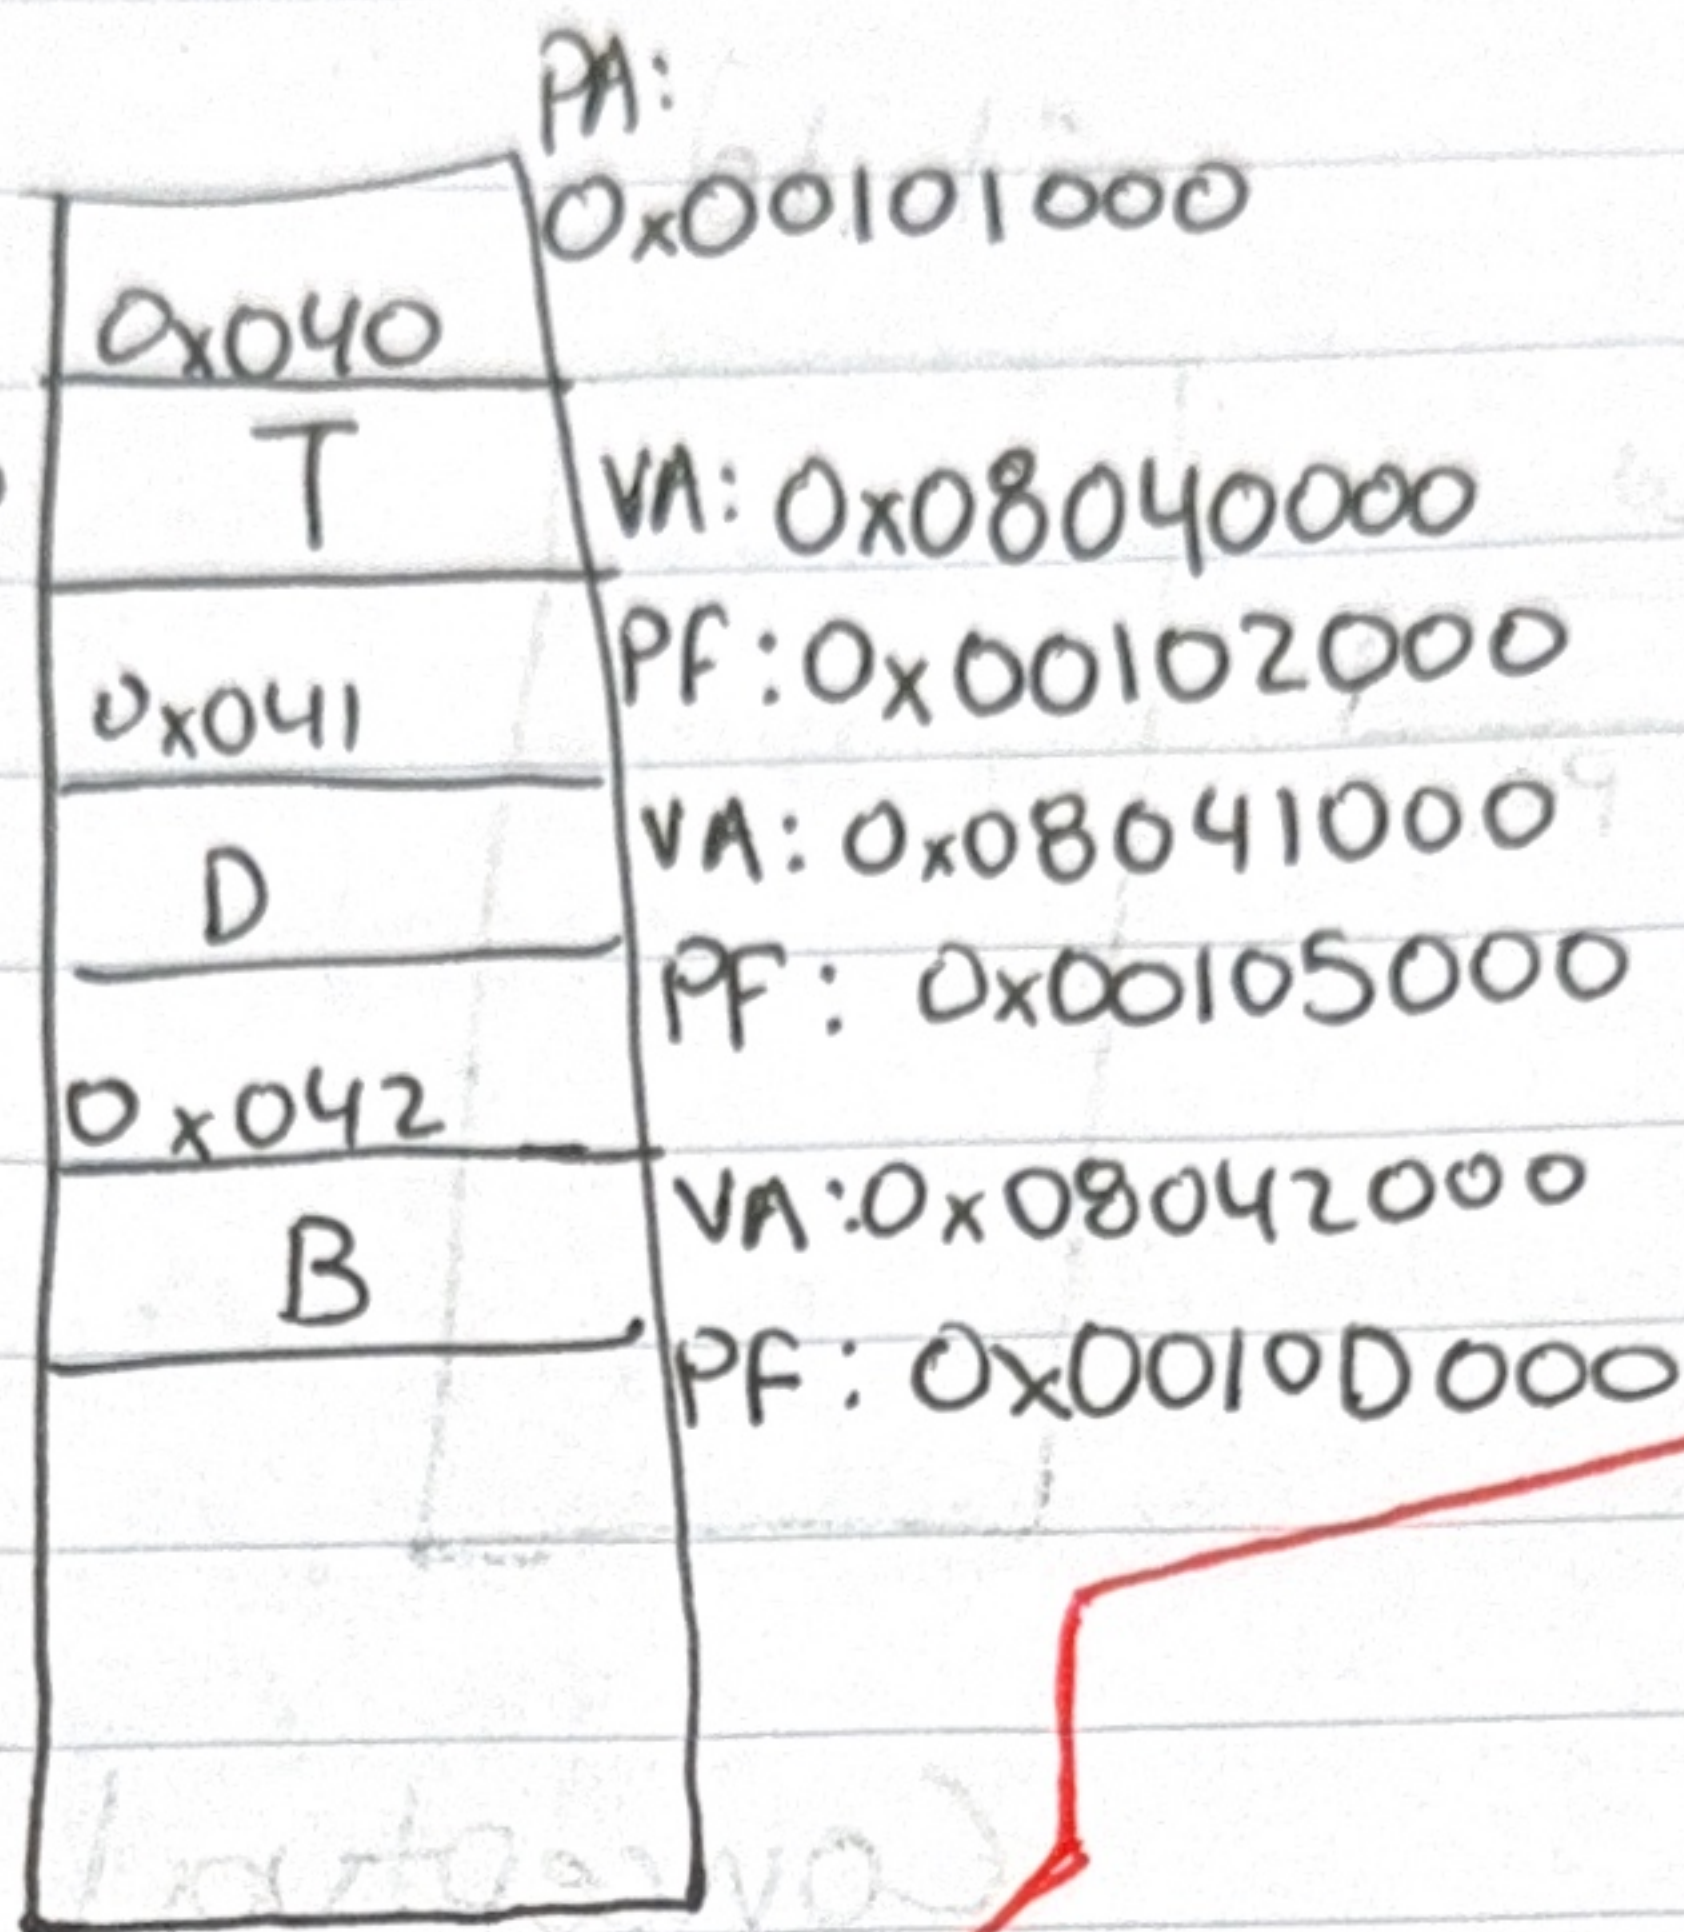 PA:
0x00101000
0x040
T
VA: 0x08040000
PF: 0x00102000
0x041
VA: 0x08041000
D
PF: 0x00105000
0x042
VA: 0x08042000
B
PF: 0x0010D000